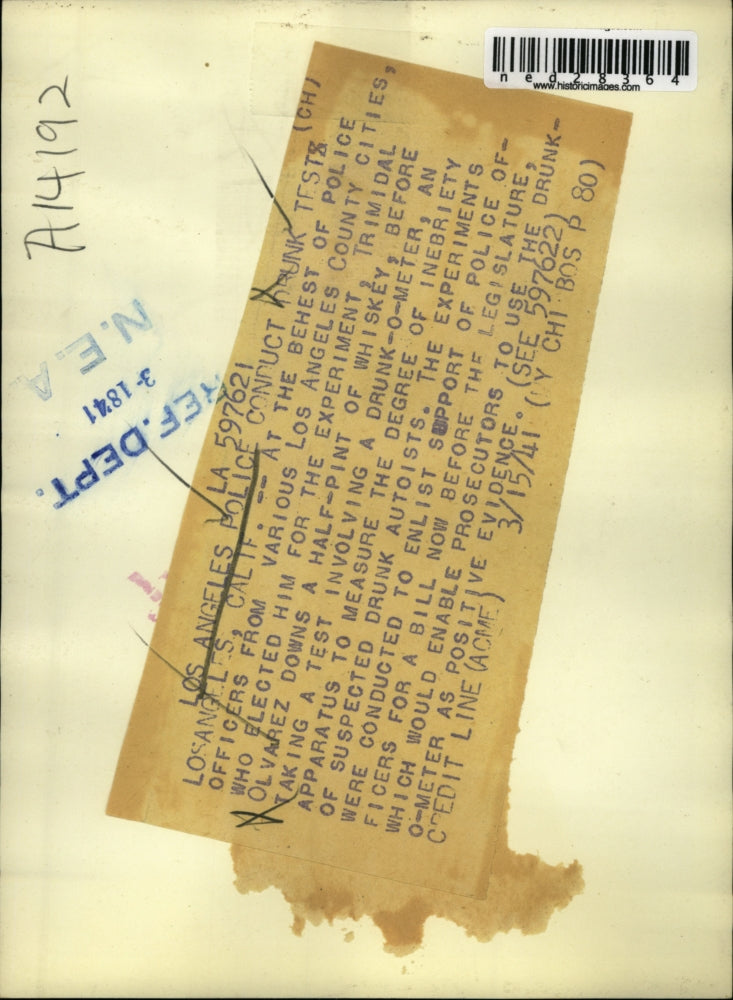 ned28364
www.historicimages.com
A14192
N.E.A
3-1841
REF.DEPT.
LA 597621
LOS ANGELES POLICE CONDUCT DRUNK TESTS (CH)
LOSANGELES, CALIF. -- AT THE BEHEST OF POLICE
OFFICERS FROM VARIOUS LOS ANGELES COUNTY CITIES,
WHO ELECTED HIM FOR THE EXPERIMENT, TRIMIDAL
OLVAREZ DOWNS A HALF-PINT OF WHISKEY, BEFORE
TAKING A TEST INVOLVING A DRUNK-O-METER, AN
APPARATUS TO MEASURE THE DEGREE OF INEBRIETY
OF SUSPECTED DRUNK AUTOISTS. THE EXPERIMENTS
WERE CONDUCTED TO ENLIST SUPPORT OF POLICE OF-
FICERS FOR A BILL NOW BEFORE THE LEGISLATURE,
WHICH WOULD ENABLE PROSECUTORS TO USE THE DRUNK-
O-METER AS POSITIVE EVIDENCE. (SEE 597622)
CREDIT LINE (ACME) 3/15/41 (NY CHI BOS P 80)